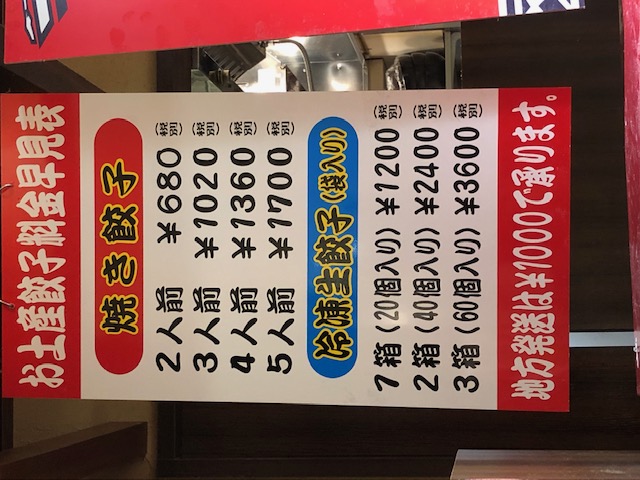 お土産餃子料金早見表
焼き餃子
2人前 ¥680(税別)
3人前 ¥1020(税別)
4人前 ¥1360(税別)
5人前 ¥1700(税別)
冷凍生餃子(袋入り)
1箱(20個入り)¥1200(税別)
2箱(40個入り)¥2400(税別)
3箱(60個入り)¥3600(税別)
地方発送は¥1000で承ります。